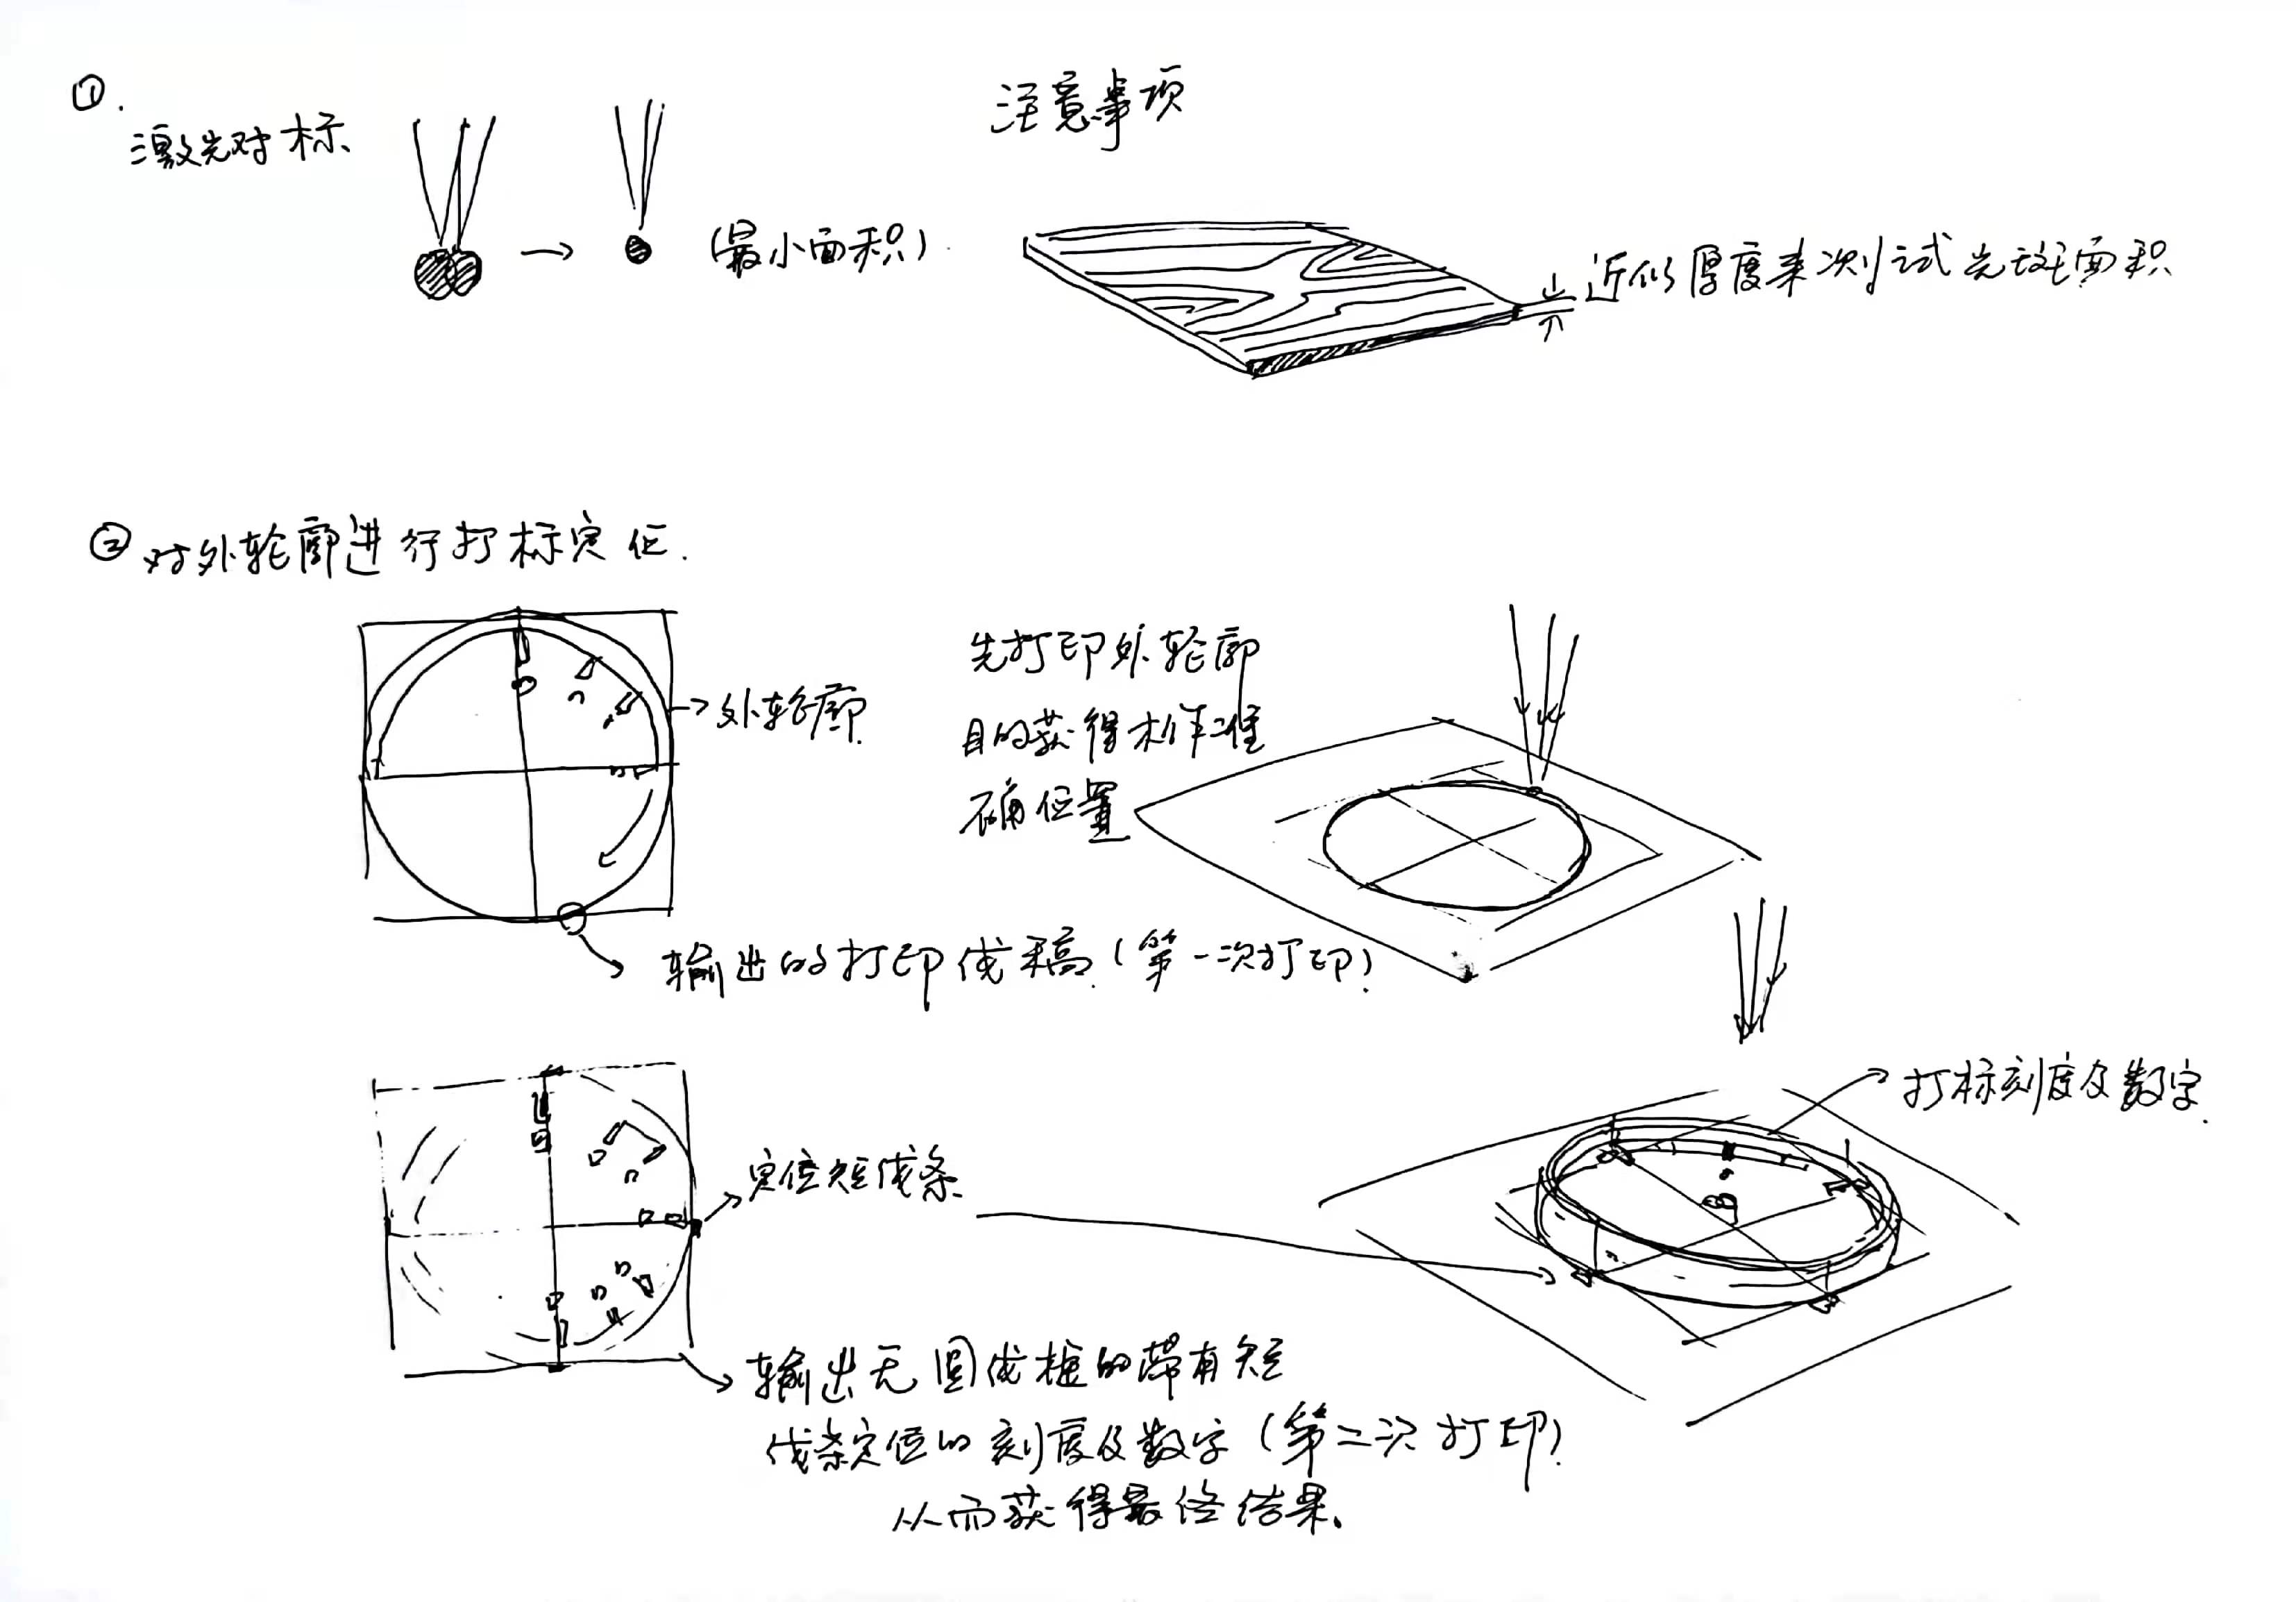 ①.
激光对标
(最小面积)
注意事项
近似厚度来测试光斑面积
② 对外轮廓进行打标定位.
外轮廓
先打印外轮廓
目的获得木件准
确位置
输出的打印线稿(第一次打印)
打标刻度及数字
定位短线条
输出无圆线框的带有短
线条定位的刻度及数字(第二次打印)
从而获得最终结果.